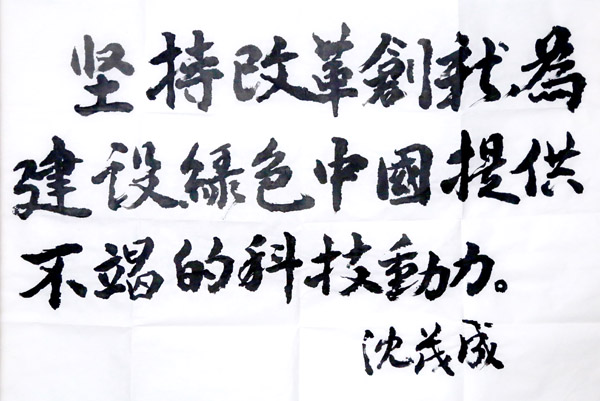 坚持改革創新,為
建设綠色中國提供
不竭的科技動力。
沈茂成